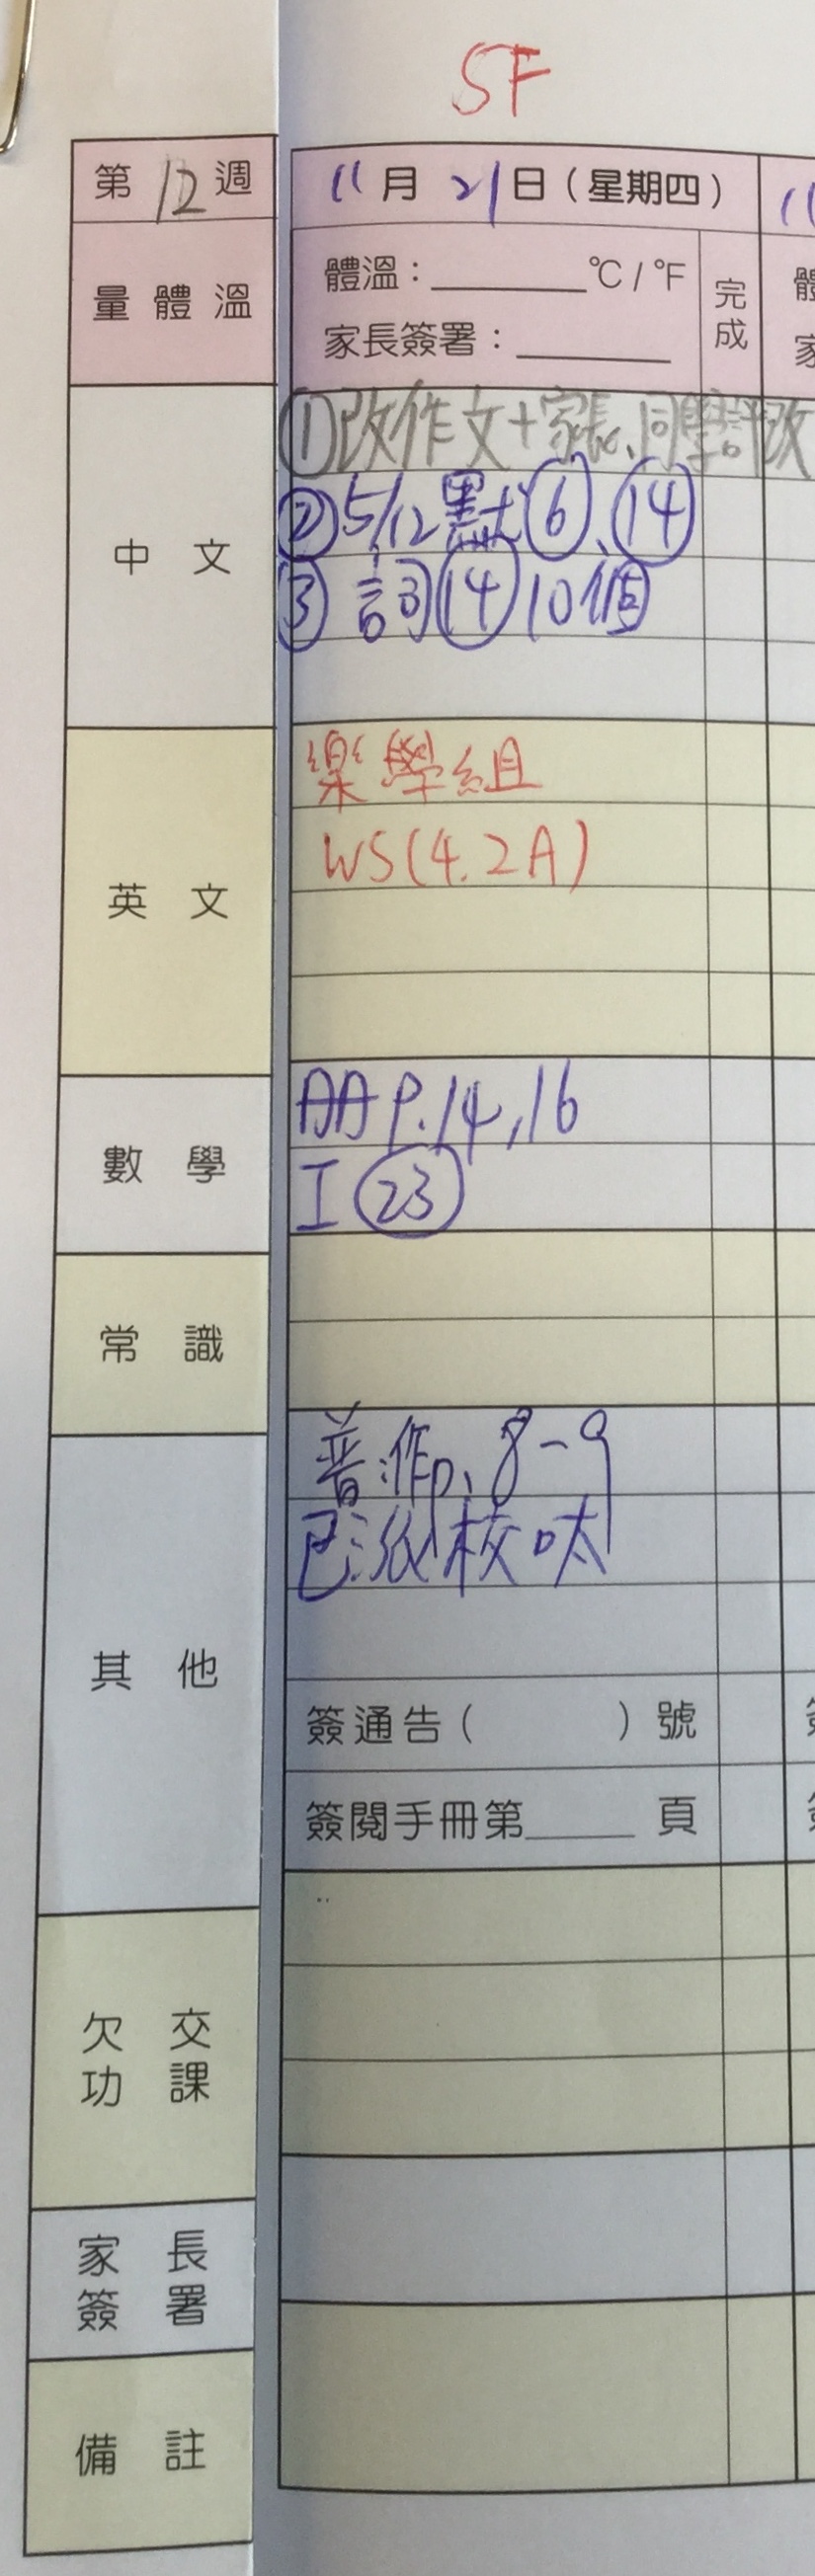 5F
第12週
11月21日(星期四)
11
量體溫
體溫:______℃/℉
完成
家長簽署:______
中文
①改作文+家長、同學評改
②5/12默⑥、⑭
③詞⑭10個
英文
樂學組
WS(4.2A)
數學
AA P.14,16
I㉓
常識
其他
普作p.8-9
已派校呔
簽通告( )號
簽閱手冊第____頁
欠交功課
家長簽署
備註